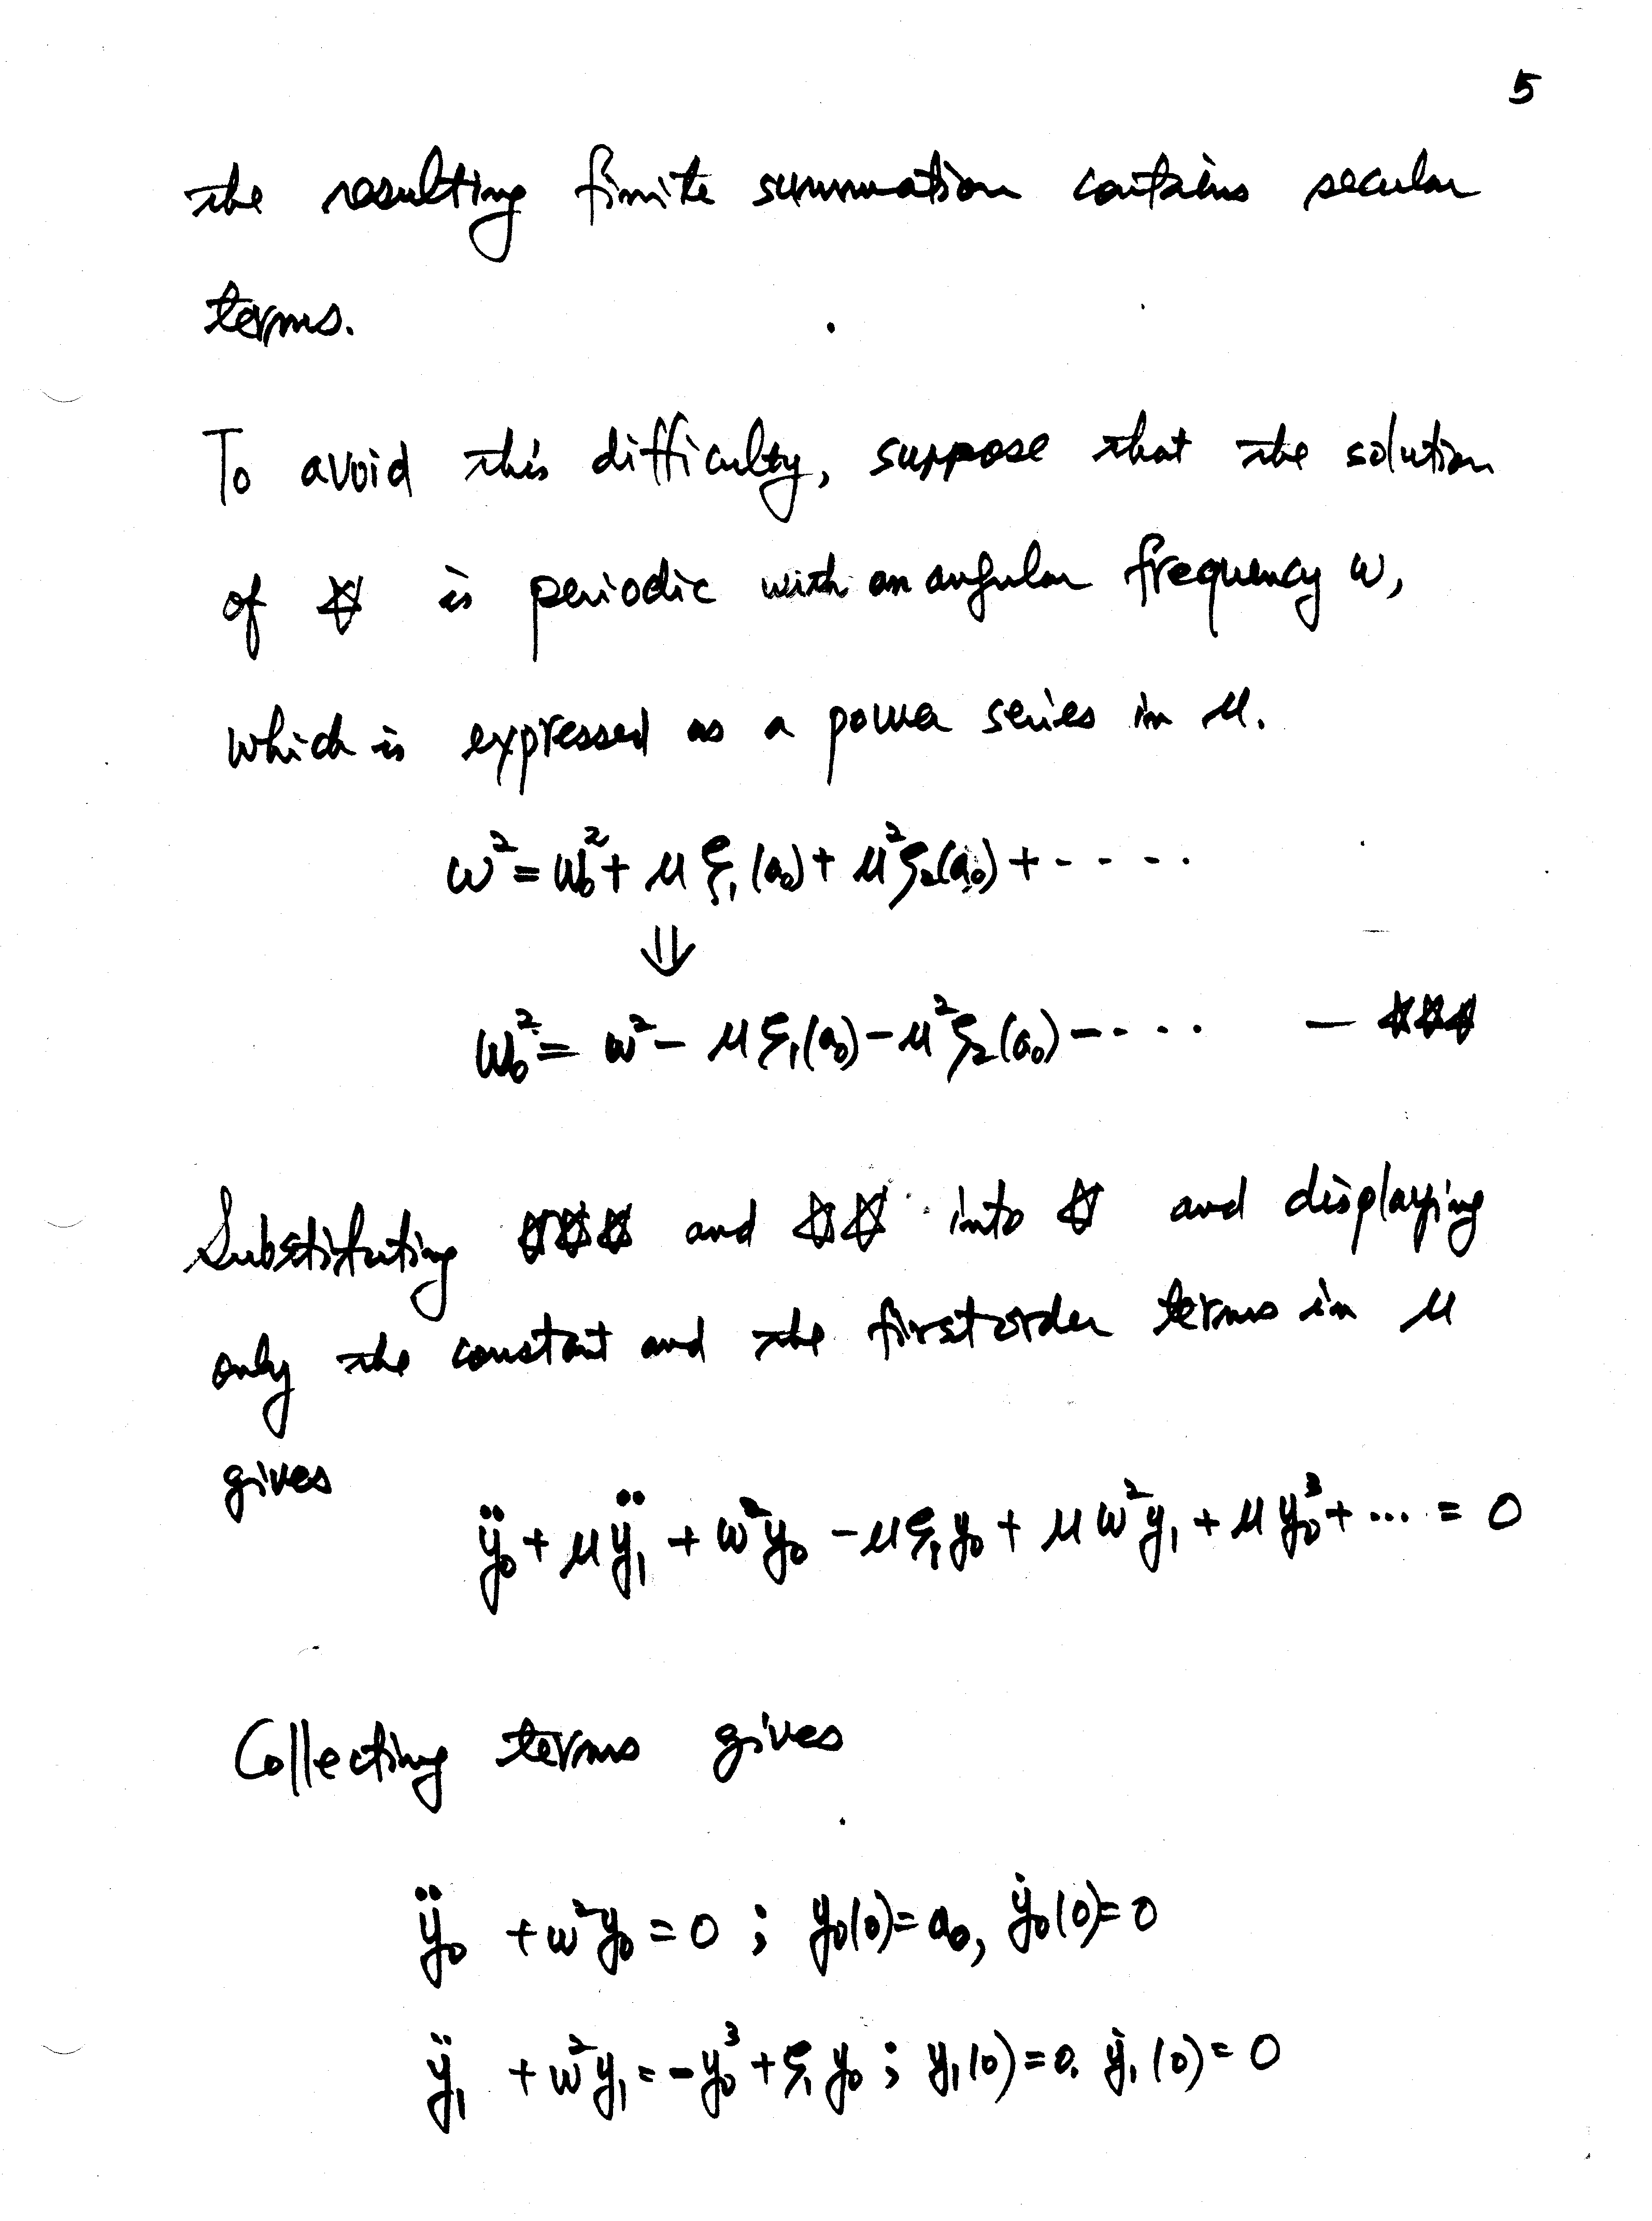 5
the resulting finite summation contains secular
terms.
To avoid this difficulty, suppose that the solution
of ☆ is periodic with an angular frequency ω,
which is expressed as a power series in μ.
ω² = ω₀² + μ ξ₁(a₀) + μ² ξ₂(a₀) + - - - -
⇓
ω₀² = ω² - μ ξ₁(a₀) - μ² ξ₂(a₀) - - - - - — ☆☆☆
Substituting ☆☆☆ and ☆☆ into ☆ and displaying
only the constant and the first order terms in μ
gives
ÿ₀ + μ ÿ₁ + ω² y₀ - μ ξ₁ y₀ + μ ω² y₁ + μ y₀³ + ... = 0
Collecting terms gives
ÿ₀ + ω² y₀ = 0 ; y₀(0) = a₀, ẏ₀(0) = 0
ÿ₁ + ω² y₁ = -y₀³ + ξ₁ y₀ ; y₁(0) = 0. ẏ₁(0) = 0